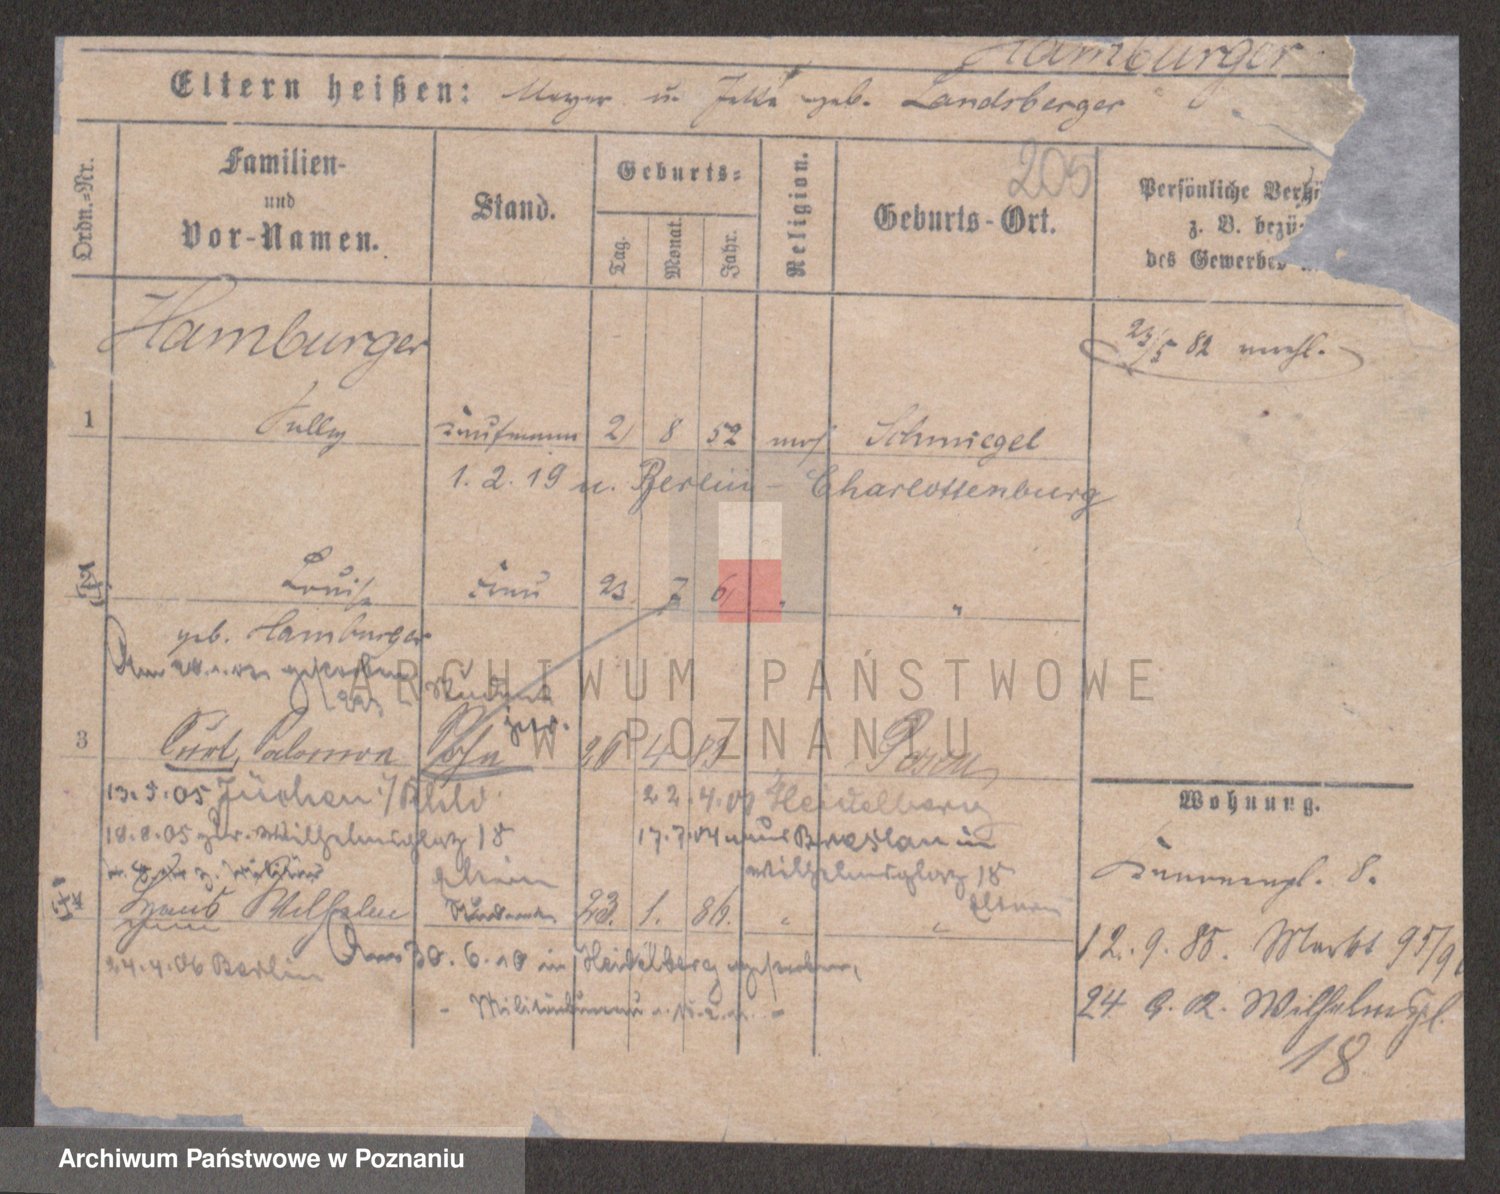 Hamburger
Eltern heißen: Meyer u. Jette geb. Landsberger
Ordn.=Nr.
Familien-
und
Vor-Namen.
Stand.
Geburts=
Tag.
Monat.
Jahr.
Religion.
205
Geburts-Ort.
Persönliche Verhä
z. B. bezü
des Gewerbes
Hamburger
23/5 82 verehl.
1 Tully Kaufmann 21 8 52 mos. Schmiegel
1. 2. 19 n. Berlin - Charlottenburg
2 Louise Frau 23. 7 61 " "
geb. Hamburger
Am gestorben
3 Curt, Salomon Sohn 26 4 83 Posen
13.5.05 Jüchen i/Rhld.
22.4.01 Heidelberg
18.8.05 zur. Wilhelmsplatz 18
17.7.04 aus Breslau in
Wilhelmsplatz 18
Eltern
Eltern
4 Hans Wilhelm 23. 1. 86. " "
24.4.06 Berlin
Am 30.6.10 in Heidelberg gestorben,
- Militärbureau
Wohnung.
8.
12. 9. 85. Markt 95/96
24 Wilhelmspl.
18
ARCHIWUM PAŃSTWOWE
W POZNANIU
Archiwum Państwowe w Poznaniu